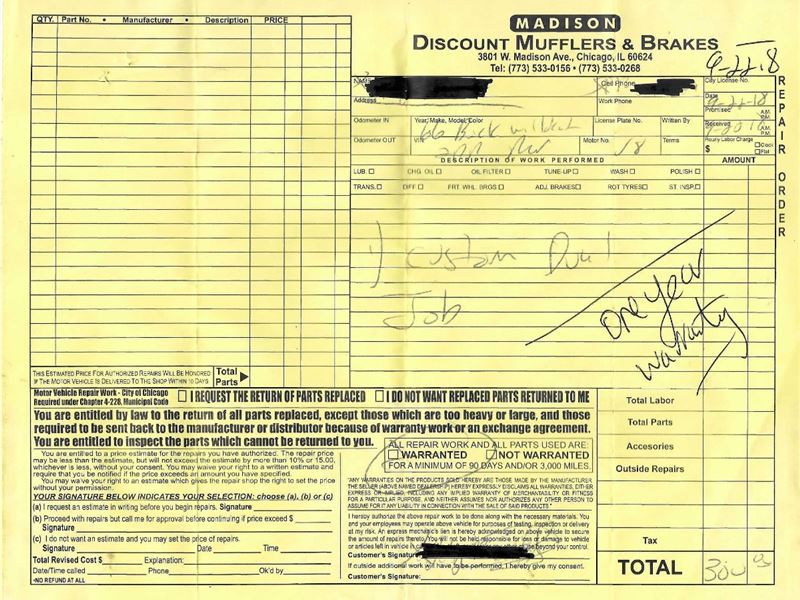 MADISON
DISCOUNT MUFFLERS & BRAKES
3801 W. Madison Ave., Chicago, IL 60624
Tel: (773) 533-0156 • (773) 533-0268
9-22-18
QTY. Part No. • Manufacturer • Description PRICE
NAME Cell Phone City License No.
Address Work Phone Date 9-22-18
Promised A.M. P.M.
Odometer IN Year, Make, Model, Color 66 Buick wildcat License Plate No. Written By Received A.M. P.M.
Odometer OUT VIN Motor No. V8 Terms Hourly Labor Charge $ Clock Flat
REPAIR ORDER
DESCRIPTION OF WORK PERFORMED AMOUNT
LUB. CHG OIL OIL FILTER TUNE-UP WASH POLISH
TRANS. DIFF FRT. WHL. BRGS ADJ. BRAKES ROT TYRES ST. INSP.
1) Custom Dual
Job
one year
warranty
THIS ESTIMATED PRICE FOR AUTHORIZED REPAIRS WILL BE HONORED
IF THE MOTOR VEHICLE IS DELIVERED TO THE SHOP WITHIN 10 DAYS
Total Parts
Motor Vehicle Repair Work - City of Chicago
Required under Chapter 4-228, Municipal Code
I REQUEST THE RETURN OF PARTS REPLACED I DO NOT WANT REPLACED PARTS RETURNED TO ME
You are entitled by law to the return of all parts replaced, except those which are too heavy or large, and those
required to be sent back to the manufacturer or distributor because of warranty work or an exchange agreement.
You are entitled to inspect the parts which cannot be returned to you.
You are entitled to a price estimate for the repairs you have authorized. The repair price
may be less than the estimate, but will not exceed the estimate by more than 10% or 15.00,
whichever is less, without your consent. You may waive your right to a written estimate and
require that you be notified if the price exceeds an amount you have specified.
You may waive your right to an estimate which gives the repair shop the right to set the price
without your permission.
YOUR SIGNATURE BELOW INDICATES YOUR SELECTION: choose (a), (b) or (c)
(a) I request an estimate in writing before you begin repairs. Signature
(b) Proceed with repairs but call me for approval before continuing if price exceed $
Signature
(c) I do not want an estimate and you may set the price of repairs.
Signature Date Time
Total Revised Cost $ Explanation:
Date/Time called Phone Ok'd by
•NO REFUND AT ALL
ALL REPAIR WORK AND ALL PARTS USED ARE:
WARRANTED NOT WARRANTED
FOR A MINIMUM OF 90 DAYS AND/OR 3,000 MILES.
"ANY WARRANTIES ON THE PRODUCTS SOLD HEREBY ARE THOSE MADE BY THE MANUFACTURER.
THE SELLER (ABOVE NAMED DEALERSHIP) HEREBY EXPRESSLY DISCLAIMS ALL WARRANTIES, EITHER
EXPRESS OR IMPLIED, INCLUDING ANY IMPLIED WARRANTY OF MERCHANTABILITY OR FITNESS
FOR A PARTICULAR PURPOSE, AND NEITHER ASSUMES NOR AUTHORIZES ANY OTHER PERSON TO
ASSUME FOR IT ANY LIABILITY IN CONNECTION WITH THE SALE OF SAID PRODUCTS."
I hereby authorize the above repair work to be done along with the necessary materials. You
and your employees may operate above vehicle for purposes of testing, inspection or delivery
at my risk. An express mechanics lien is hereby acknowledged on above vehicle to secure
the amount of repairs thereto. You will not be held responsible for loss or damage to vehicle
or articles left in vehicle in beyond your control.
Customer's Signature:
If outside additional work will have to be performed, I hereby give my consent.
Customer's Signature:
Total Labor
Total Parts
Accesories
Outside Repairs
Tax
TOTAL 300